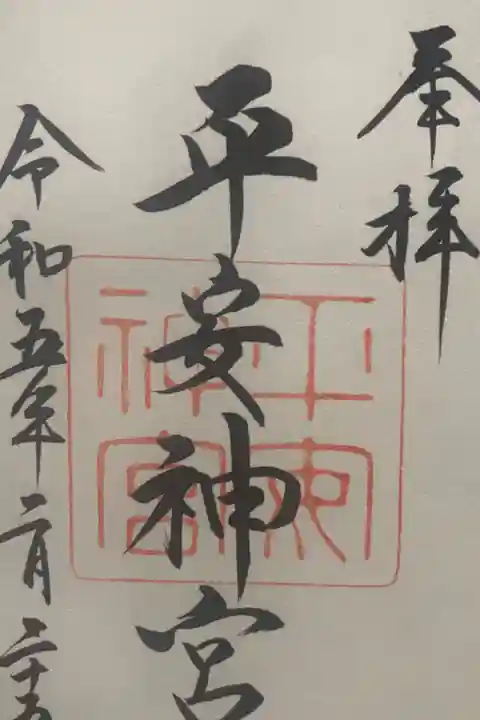 奉拝
平安神宮
平安神宮
令和五年二月二十五